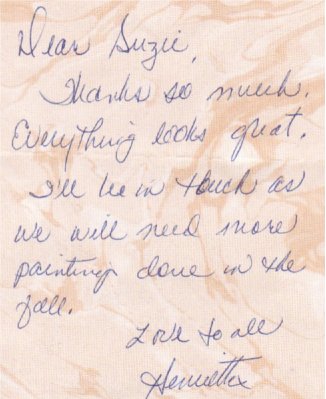 Dear Suzie,
Thanks so much.
Everything looks great.
I'll be in touch as
we will need more
painting done in the
fall.
Love to all
Henrietta